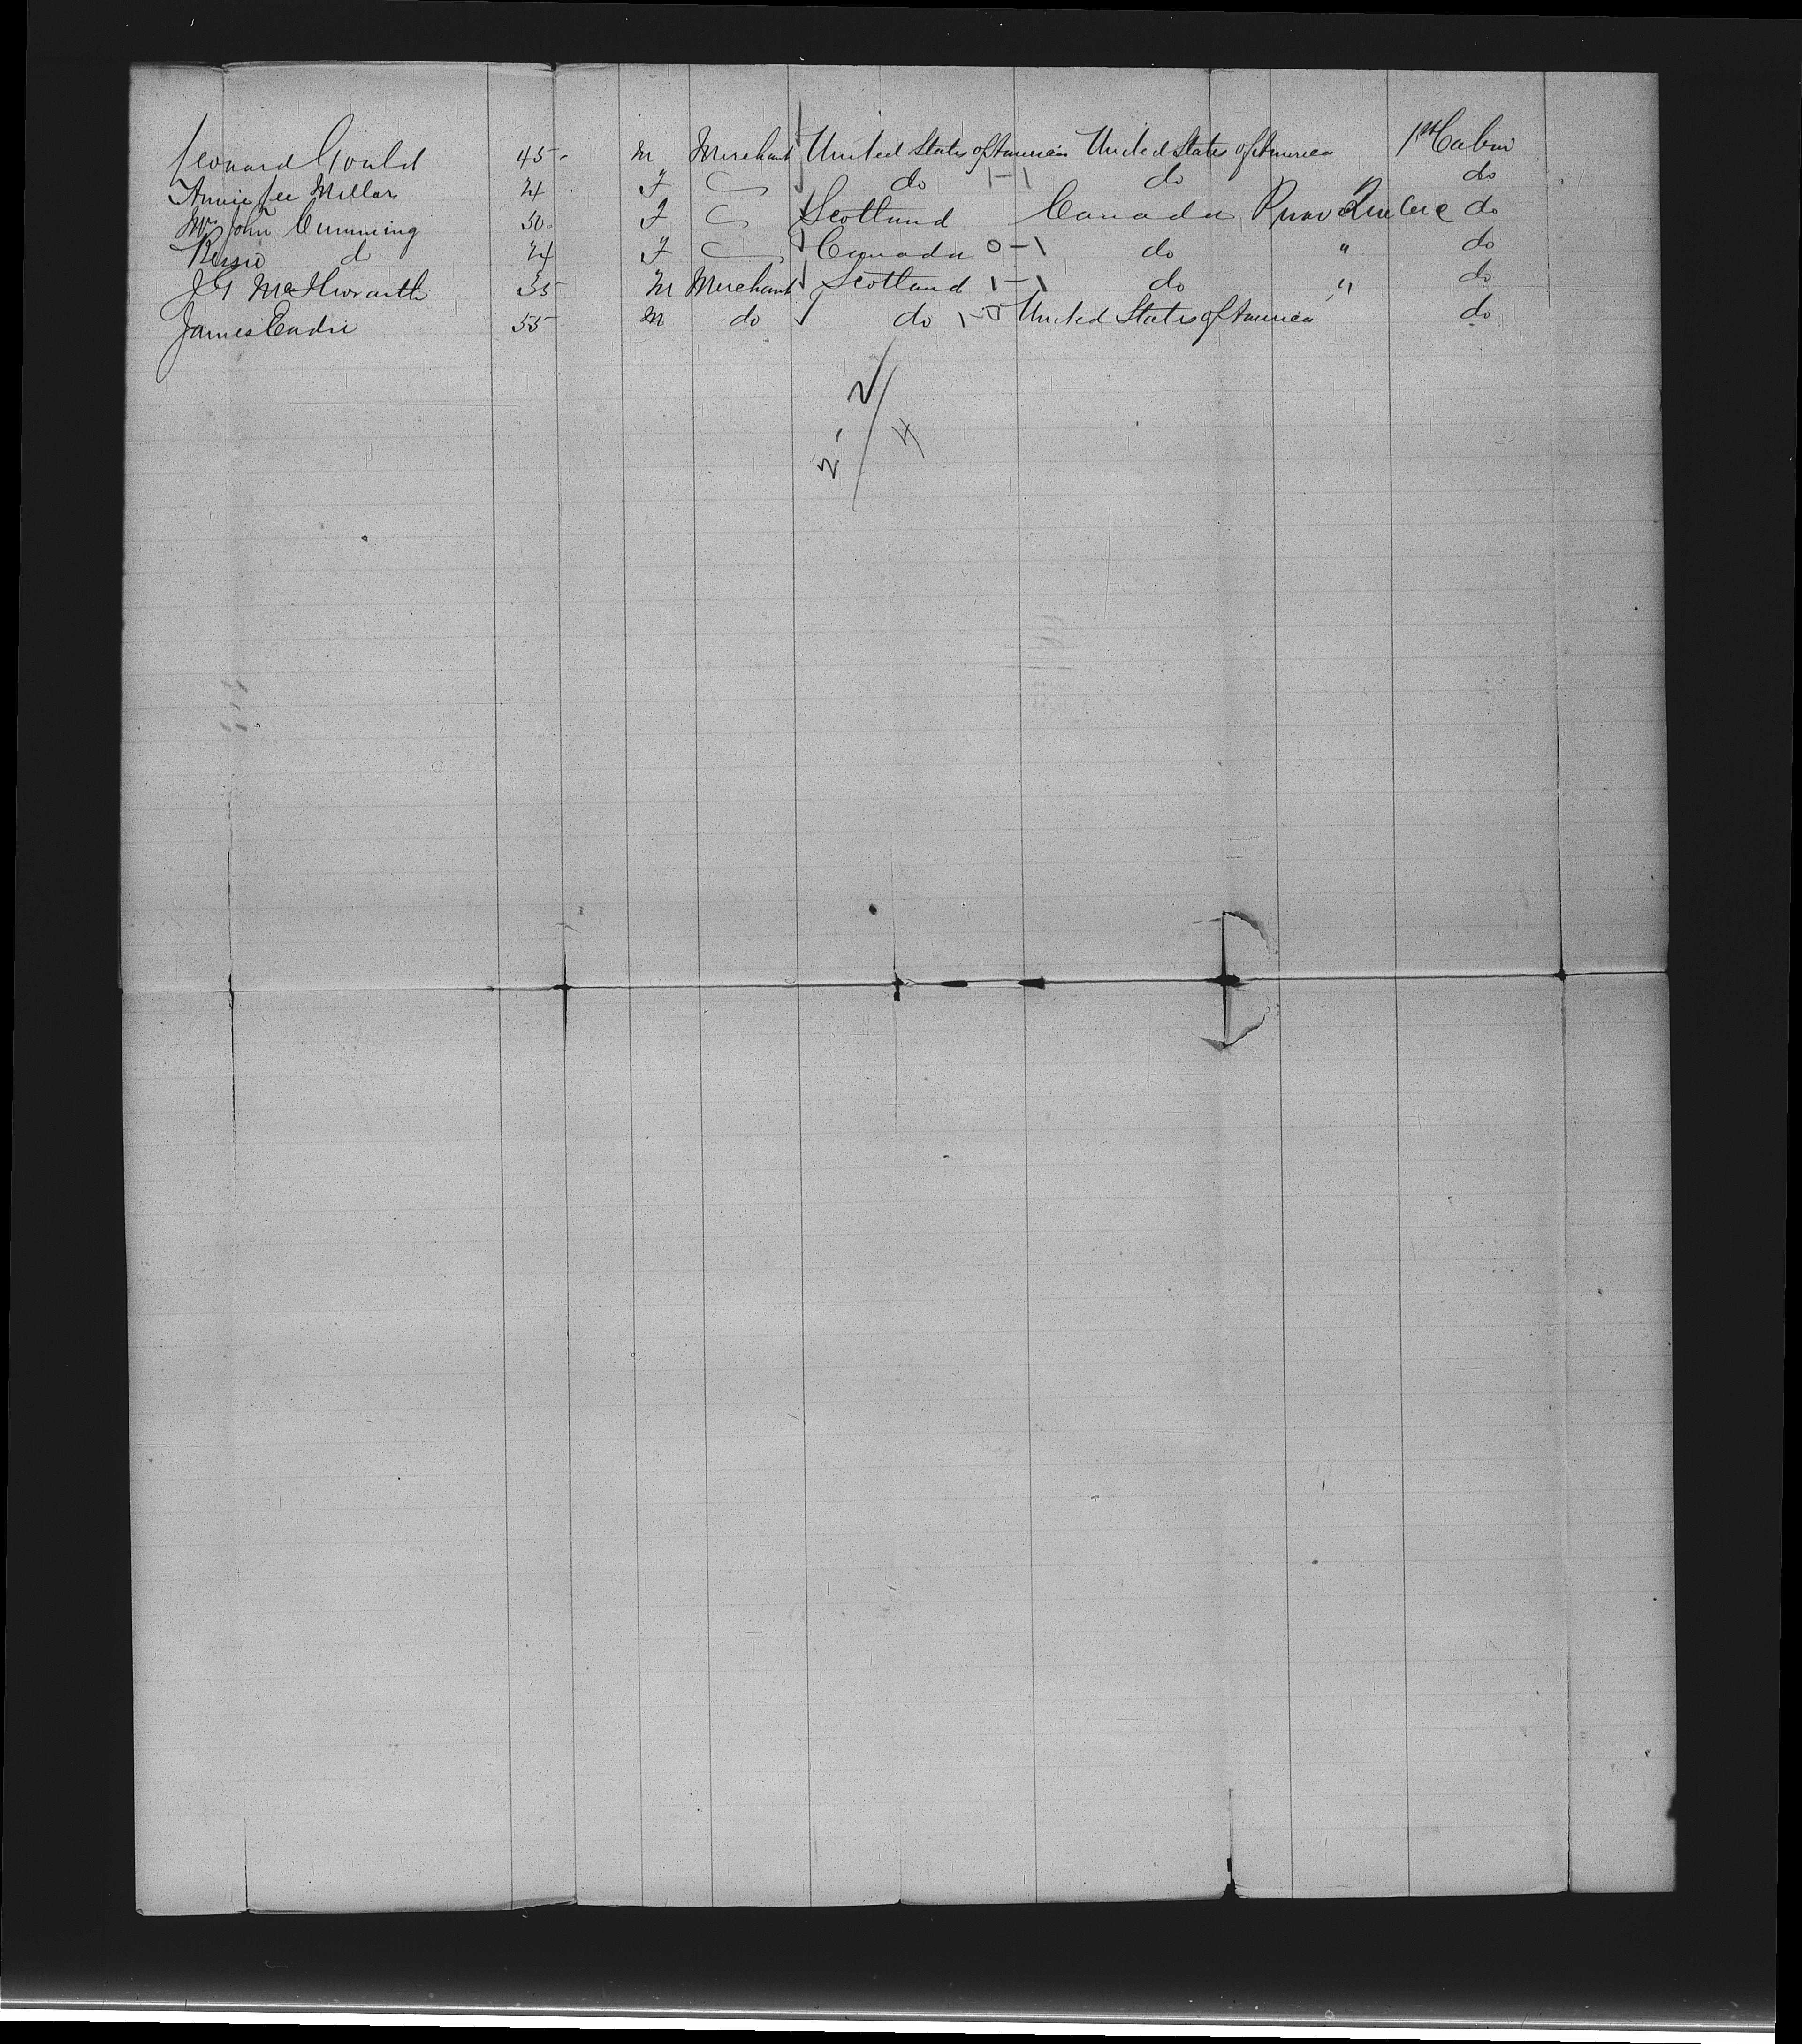 Leonard Gould 45 M Merchant United States of America United States of America 1st Cabin
Annie Lee Millar 24 F do 1-1 do " do
Mrs John Cumming 50 F Scotland Canada Prov Quebec do
do 24 F Canada 0-1 do " do
J G 35 M Merchant Scotland 1-1 do " do
James Eadie 55 M do do United States of America do
2/
2- 4